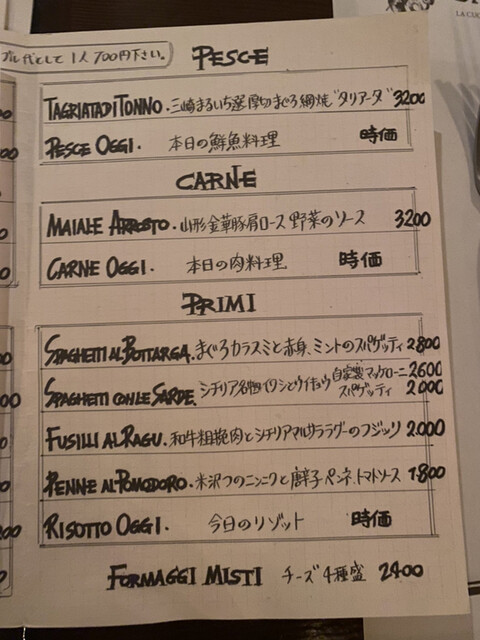 ブル代として1人700円下さい。
PESCE
TAGRIATA DI TONNO. 三崎まるいち選厚切まぐろ網焼"タリアータ" 3200
PESCE OGGI. 本日の鮮魚料理 時価
CARNE
MAIALE ARROSTO. 山形金華豚肩ロース 野菜のソース 3200
CARNE OGGI. 本日の肉料理 時価
PRIMI
SPAGHETTI AL BOTTARGA. まぐろカラスミと赤身、ミントのスパゲッティ 2800
SPAGHETTI CON LE SARDE. シチリア名物イワシとウイキョウ 自家製マッケローニ 2600
スパゲッティ 2000
FUSILLI AL RAGU. 和牛粗挽肉とシチリアマルサラ ラグーのフジッリ 2.000
PENNE AL POMODORO. 米沢つのニンニクと唐辛子 ペンネ、トマトソース 1.800
RISOTTO OGGI. 今日のリゾット 時価
FORMAGGI MISTI チーズ4種盛 2400
LA CUC